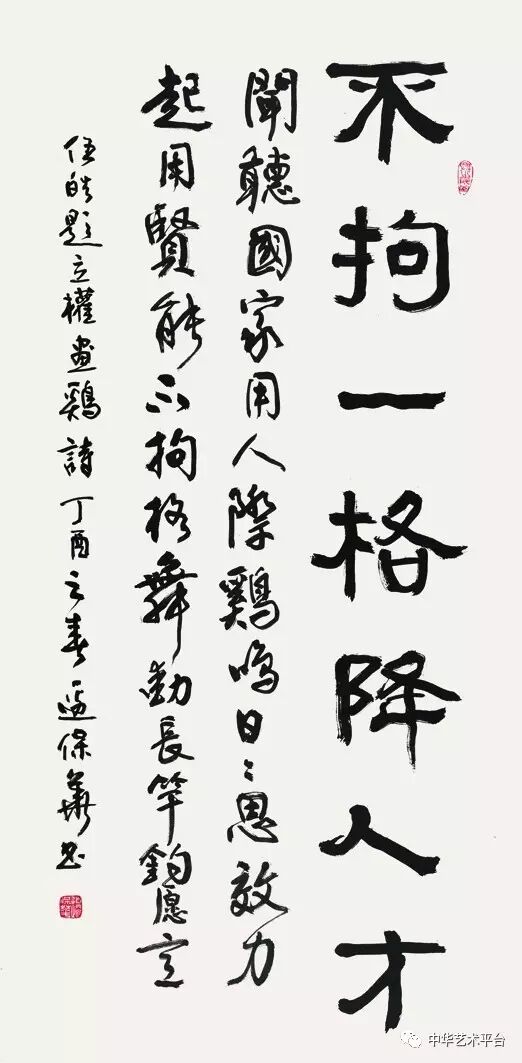 不拘一格降人才
聞聽國家用人際鷄鳴日々思效力
起用賢能不拘格舞動長竿
伍皓題立權畫鷄詩丁酉之春保華書
中华艺术平台